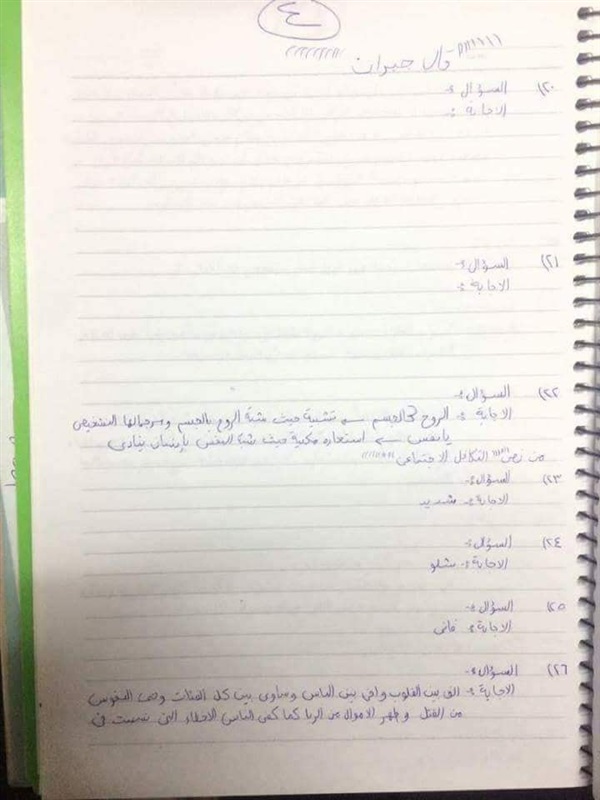 ٤
قال جبران
٢٠) السؤال :-
الاجابة :-
٢١) السؤال :-
الاجابة :-
٢٢) السؤال :-
الاجابة :- الروح كالجسم ← تشبية حيث شبة الروح بالجسم وسر جمالها التشخيص
يا نفس ← استعاره مكنية حيث شبة النفس بإنسان ينادى
من نص "التكافل الاجتماعى"
٢٣) السؤال :-
الاجابة :- شديد
٢٤) السؤال :-
الاجابة :- شلو
٢٥) السؤال :-
الاجابة :- فانى
٢٦) السؤال :-
الاجابة :- الف بين القلوب واخى بين الناس وساوى بين كل الفئات وحمى النفوس
من القتل وطهر الاموال من الربا كما كفى الناس الاخطاء التى تسببت فى